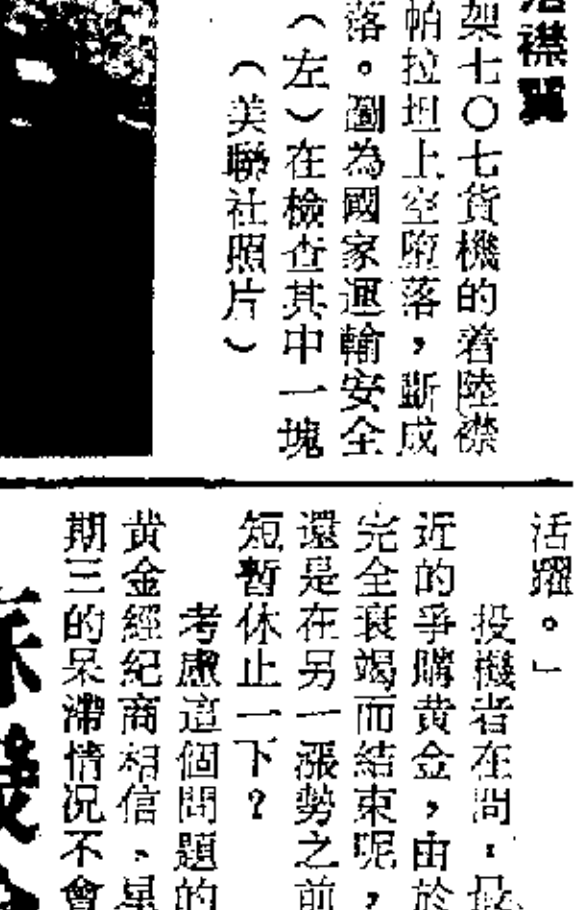 襟翼
架七〇七貨機的着陸襟
帕拉坦上空墮落，斷成
落。圖為國家運輸安全
（左）在檢查其中一塊
（美聯社照片）
活躍。」
投機者在問：最
近的爭購黃金，由於
完全衰竭而結束呢，
還是在另一漲勢之前
短暫休止一下？
考慮這個問題的
黃金經紀商相信、星
期三的呆滯情況不會